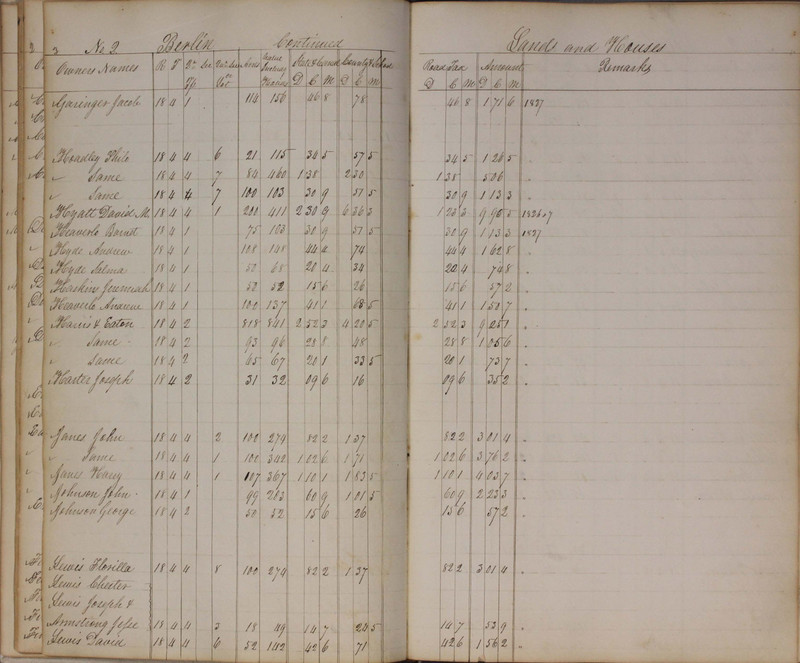 No 2 Berlin Continued Lands and Houses
Owners Names R T Acres State & Canal Road Tax Amount Remarks
D C M D C M D C M D C M
Jacob 18 4 1 114 156 46 8 78 46 8 1 71 6 1837
Hoadley Philo 18 4 4 6 21 115 34 5 57 5 34 5 1 26 5 "
" Same 18 4 4 7 84 460 1 38 2 30 1 38 5 06 "
" Same 18 4 4 7 100 103 30 9 51 5 30 9 1 13 3 "
Hyatt David M. 18 4 4 1 200 411 2 30 9 6 36 3 1 23 3 9 90 5
Heaverlo Barnet 18 4 1 75 103 30 9 51 5 30 9 1 13 3 1837
Hyde Andrew 18 4 1 108 148 44 4 74 44 4 1 62 8 "
Hyde Selma 18 4 1 50 68 20 4 34 20 4 74 8 "
Haskins Jeremiah 18 4 1 52 52 15 6 26 15 6 57 2 "
Heaverlo Andrew 18 4 1 100 137 41 1 68 5 41 1 1 50 7 "
Harris & Eaton 18 4 2 818 841 2 52 3 4 20 5 2 52 3 9 25 1 "
" Same 18 4 2 93 96 28 8 48 28 8 1 05 6 "
" Same 18 4 2 65 67 20 1 33 5 20 1 73 7 "
Harter Joseph 18 4 2 31 32 09 6 16 09 6 35 2 "
Janes John 18 4 4 2 100 274 82 2 1 37 82 2 3 01 4 "
" Same 18 4 4 1 100 342 1 02 6 1 71 1 02 6 3 76 2 "
Janes Harry 18 4 4 1 107 367 1 10 1 1 83 5 1 10 1 4 03 7 "
Johnson John 18 4 1 99 203 60 9 1 01 5 60 9 2 23 3 "
Johnson George 18 4 2 50 52 15 6 26 15 6 57 2 "
Lewis Florilla 18 4 4 8 100 274 82 2 1 37 82 2 3 01 4 "
Lewis Chester
Lewis Joseph &
Armstrong Jesse 18 4 4 3 18 49 14 7 24 5 14 7 53 9 "
Lewis David 18 4 4 6 52 142 42 6 71 42 6 1 56 2 "